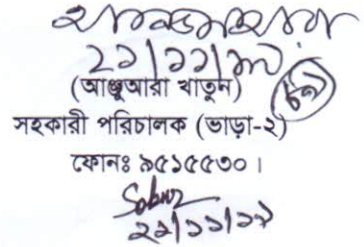 ২১/১১/১৭
(আঞ্জুআরা খাতুন)
সহকারী পরিচালক (ভাড়া-২)
ফোনঃ ৯৫১৫৫৩০।
Sobuz
২১/১১/১৭